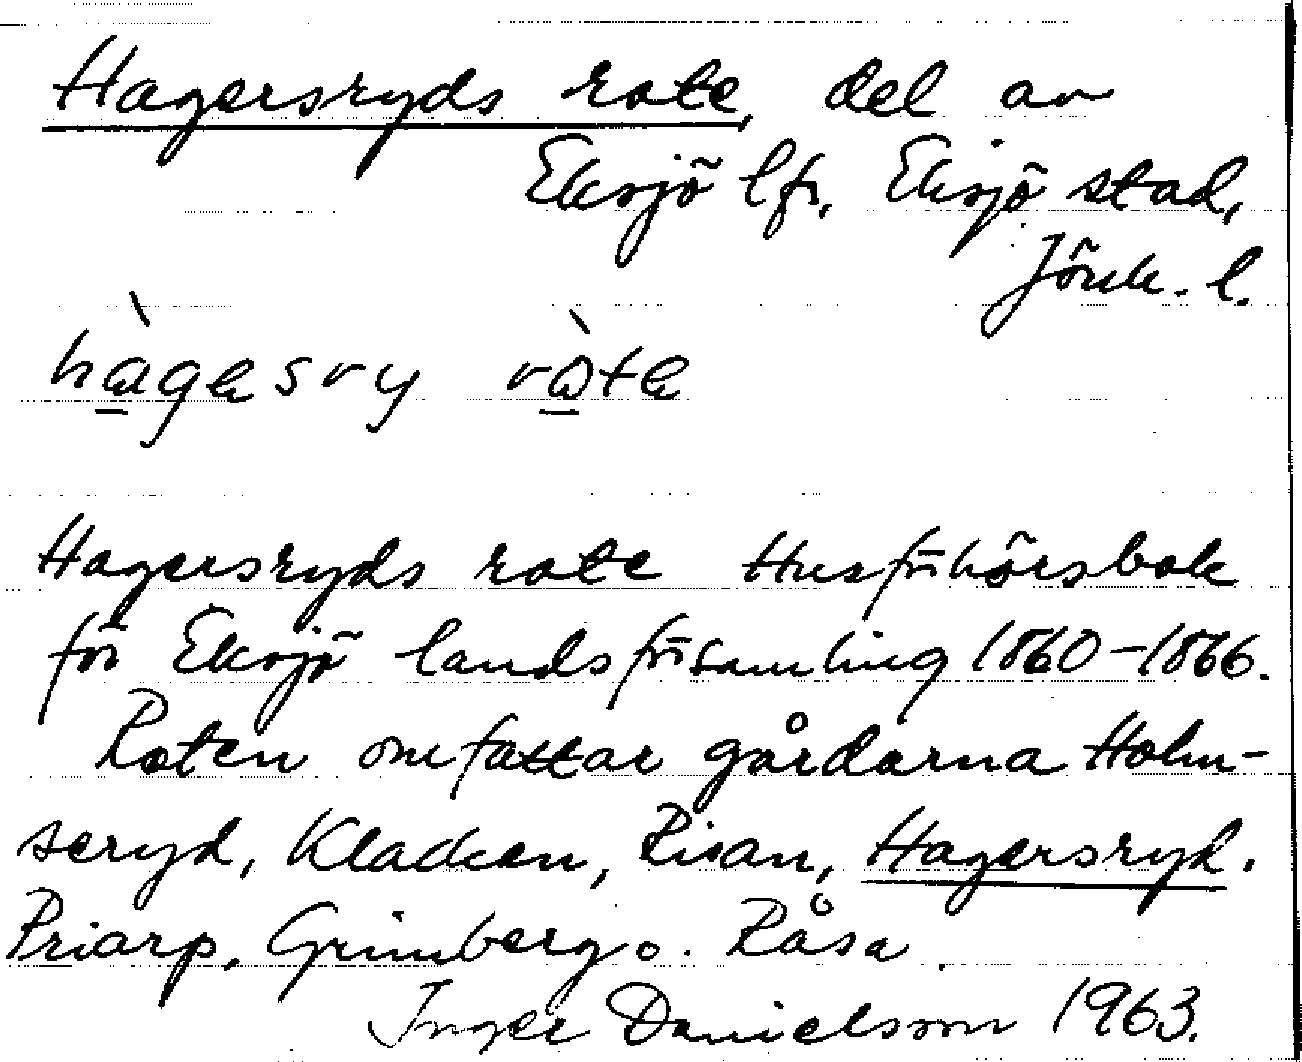 Hagersryds rote, del av
Eksjö lfs, Eksjö stad,
Jönk. l.
hàgesry ròte
Hagersryds rote Husförhörsbok
för Eksjö landsförsamling 1860-1866.
Roten omfattar gårdarna Holm-
seryd, Klacken, Risan, Hagersryd.
Priarp, Grimberg o. Råsa.
Inger Danielsson 1963.